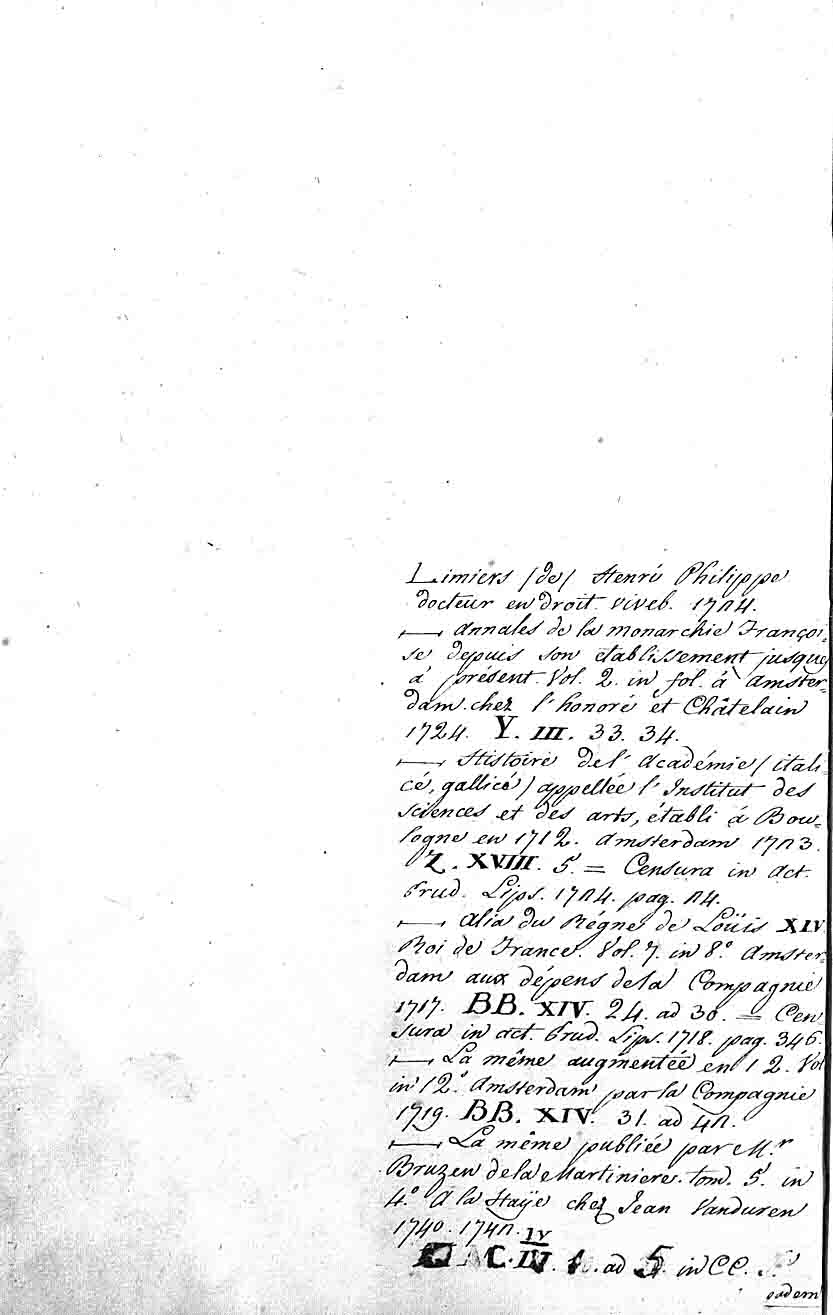 Limiers /de/ Henri Philippe
docteur en droit. viveb. 1724.
— Annales de la monarchie Françoi-
se depuis son établissement jusques
à présent. Vol. 2. in fol. à Amster-
dam chez l'honoré et Châtelain
1724. Y. III. 33. 34.
— Histoire de l'Académie / itali-
cé, gallicé / appellée l'Institut des
sciences et des arts, établi à Bou-
logne en 1712. Amsterdam 1723.
Z. XVIII. 5. = Censura in Act.
Erud. Lips. 1724. pag. 24.
— alia du Régne de Loüis XIV.
Roi de France. Vol. 7. in 8.° Amster-
dam aux dépens de la Compagnie
1717. BB. XIV. 24. ad 30. = Cen-
sura in act. Erud. Lips. 1718. pag. 346.
— La même augmentée en 12. Vol
in 12.° Amsterdam par la Compagnie
1719. BB. XIV. 31. ad 42.
— La même publiée par M.r
Bruzen de la Martiniere. tom. 5. in
4.° A la Haÿe chez Jean Vanduren
1740. 1742.
IV
C. IV. ad 5. in CC.
eadem